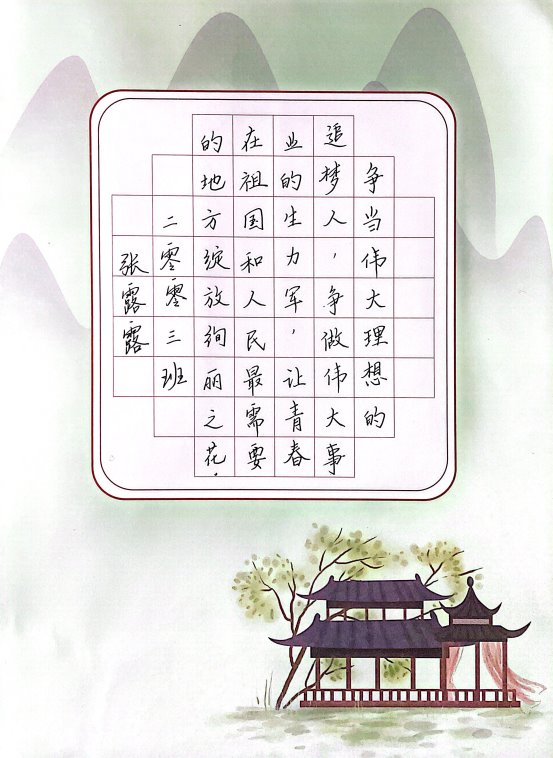 争当伟大理想的
追梦人，争做伟大事
业的生力军，让青春
在祖国和人民最需要
的地方绽放绚丽之花.
二零零三班
张露露